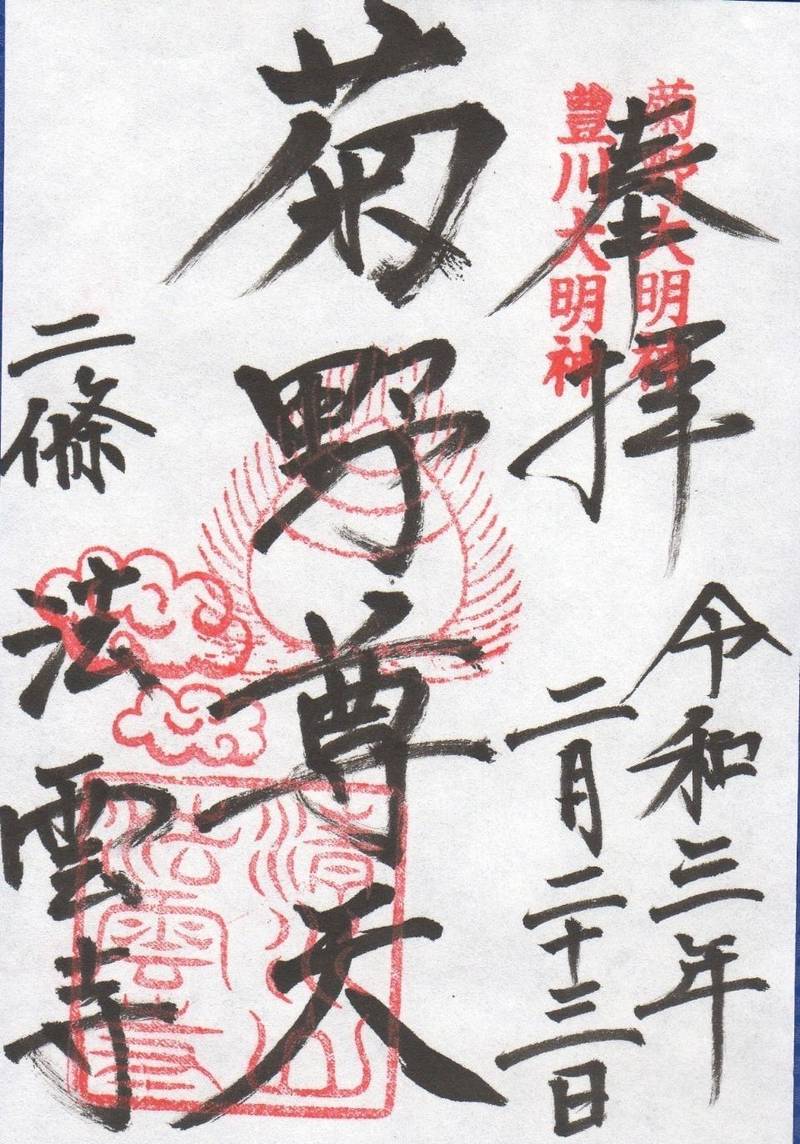 奉拝
菊野大明神
豊川大明神
令和三年
二月二十三日
菊野尊天
二條
法雲寺
清水山
法雲寺